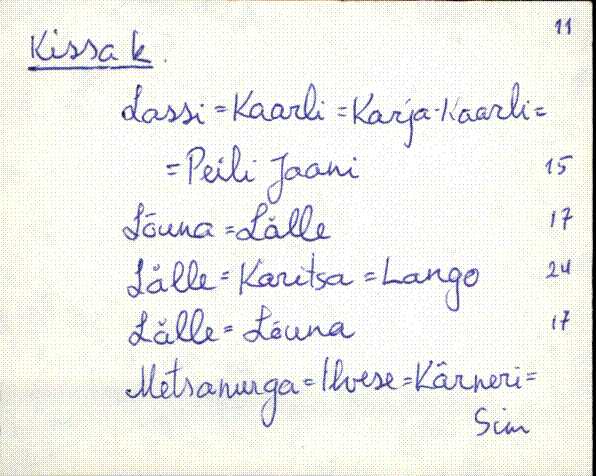 11
Kissa k.
Lassi = Kaarli = Karja-Kaarli =
= Peili Jaani 15
Lõuna = Lälle 17
Lälle = Karitsa = Lango 24
Lälle = Lõuna 17
Metsanurga = Ilvese = Kärneri =
Sim